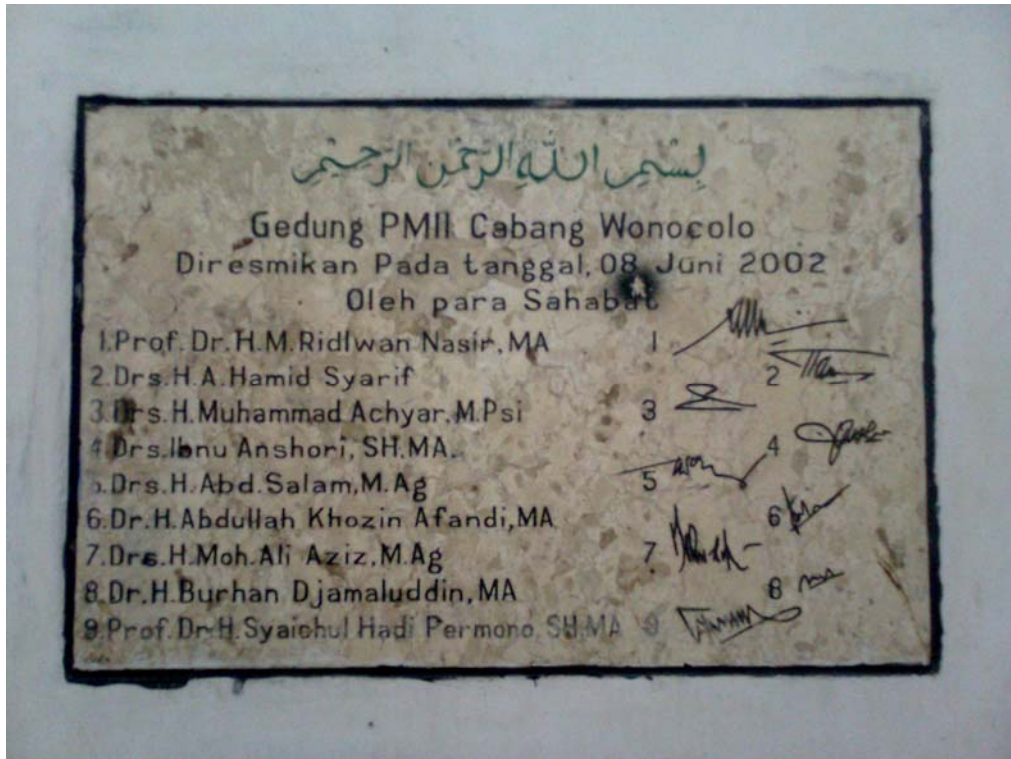 بسم الله الرحمن الرحيم
Gedung PMII Cabang Wonocolo
Diresmikan Pada tanggal, 08 Juni 2002
Oleh para Sahabat
1.Prof.Dr.H.M.Ridlwan Nasir,MA 1
2.Drs.H.A.Hamid Syarif 2
3.Drs.H.Muhammad Achyar,M.Psi 3
4.Drs.Ibnu Anshori, SH.MA. 4
5.Drs.H.Abd.Salam,M.Ag 5
6.Dr.H.Abdullah Khozin Afandi,MA 6
7.Drs.H.Moh.Ali Aziz,M.Ag 7
8.Dr.H.Burhan Djamaluddin,MA 8
9.Prof.Dr.H.Syaichul Hadi Permono,SH,MA 9